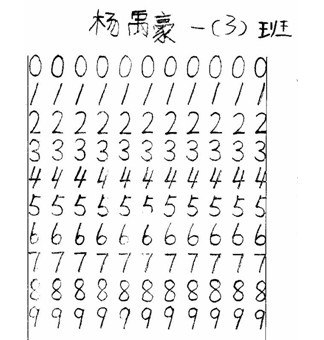 杨禹豪 一(3)班
0 0 0 0 0 0 0 0 0 0 0
1 1 1 1 1 1 1 1 1 1 1
2 2 2 2 2 2 2 2 2 2 2
3 3 3 3 3 3 3 3 3 3 3
4 4 4 4 4 4 4 4 4 4 4
5 5 5 5 5 5 5 5 5 5 5
6 6 6 6 6 6 6 6 6 6 6
7 7 7 7 7 7 7 7 7 7 7
8 8 8 8 8 8 8 8 8 8 8
9 9 9 9 9 9 9 9 9 9 9